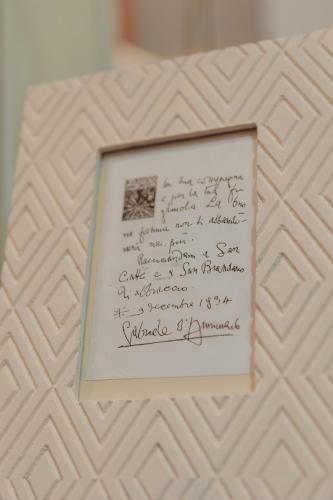 la tua compagna
e per la tua fi
gliuola. La buo
na fortuna non ti abbando-
nerà mai più.
Raccomandami a San
e a San
Ti abbraccio.
9 decembre 1934
Gabriele d'Annunzio